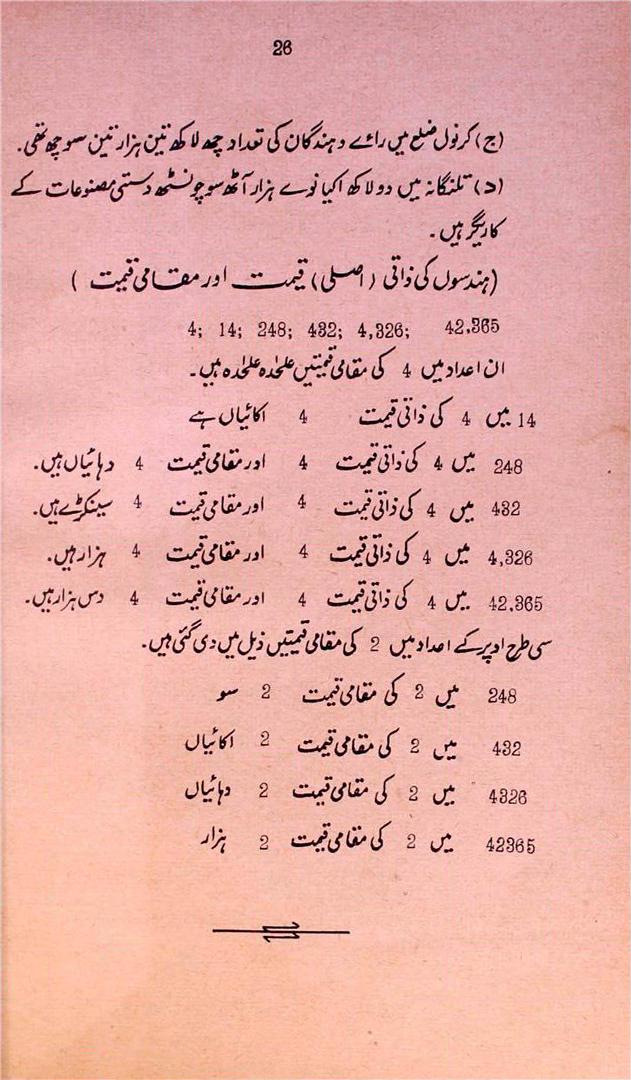 26
(ج) کرنول ضلع میں رائے دہندگان کی تعداد چھ لاکھ تین ہزار تین سو چھ تھی۔
(د) تلنگانہ میں دو لاکھ اکیانوے ہزار آٹھ سو چونسٹھ دستی مصنوعات کے
کاریگر ہیں۔
(ہندسوں کی ذاتی (اصلی) قیمت اور مقامی قیمت)
4; 14; 248; 432; 4,326; 42,365
ان اعداد میں 4 کی مقامی قیمتیں علحٰدہ علحٰدہ ہیں۔
14 میں 4 کی ذاتی قیمت 4 اکائیاں ہے
248 میں 4 کی ذاتی قیمت 4 اور مقامی قیمت 4 دہائیاں ہیں۔
432 میں 4 کی ذاتی قیمت 4 اور مقامی قیمت 4 سینکڑے ہیں۔
4,326 میں 4 کی ذاتی قیمت 4 اور مقامی قیمت 4 ہزار ہیں۔
42,365 میں 4 کی ذاتی قیمت 4 اور مقامی قیمت 4 دس ہزار ہیں۔
سی طرح اوپر کے اعداد میں 2 کی مقامی قیمتیں ذیل میں دی گئی ہیں۔
248 میں 2 کی مقامی قیمت 2 سو
432 میں 2 کی مقامی قیمت 2 اکائیاں
4326 میں 2 کی مقامی قیمت 2 دہائیاں
42365 میں 2 کی مقامی قیمت 2 ہزار